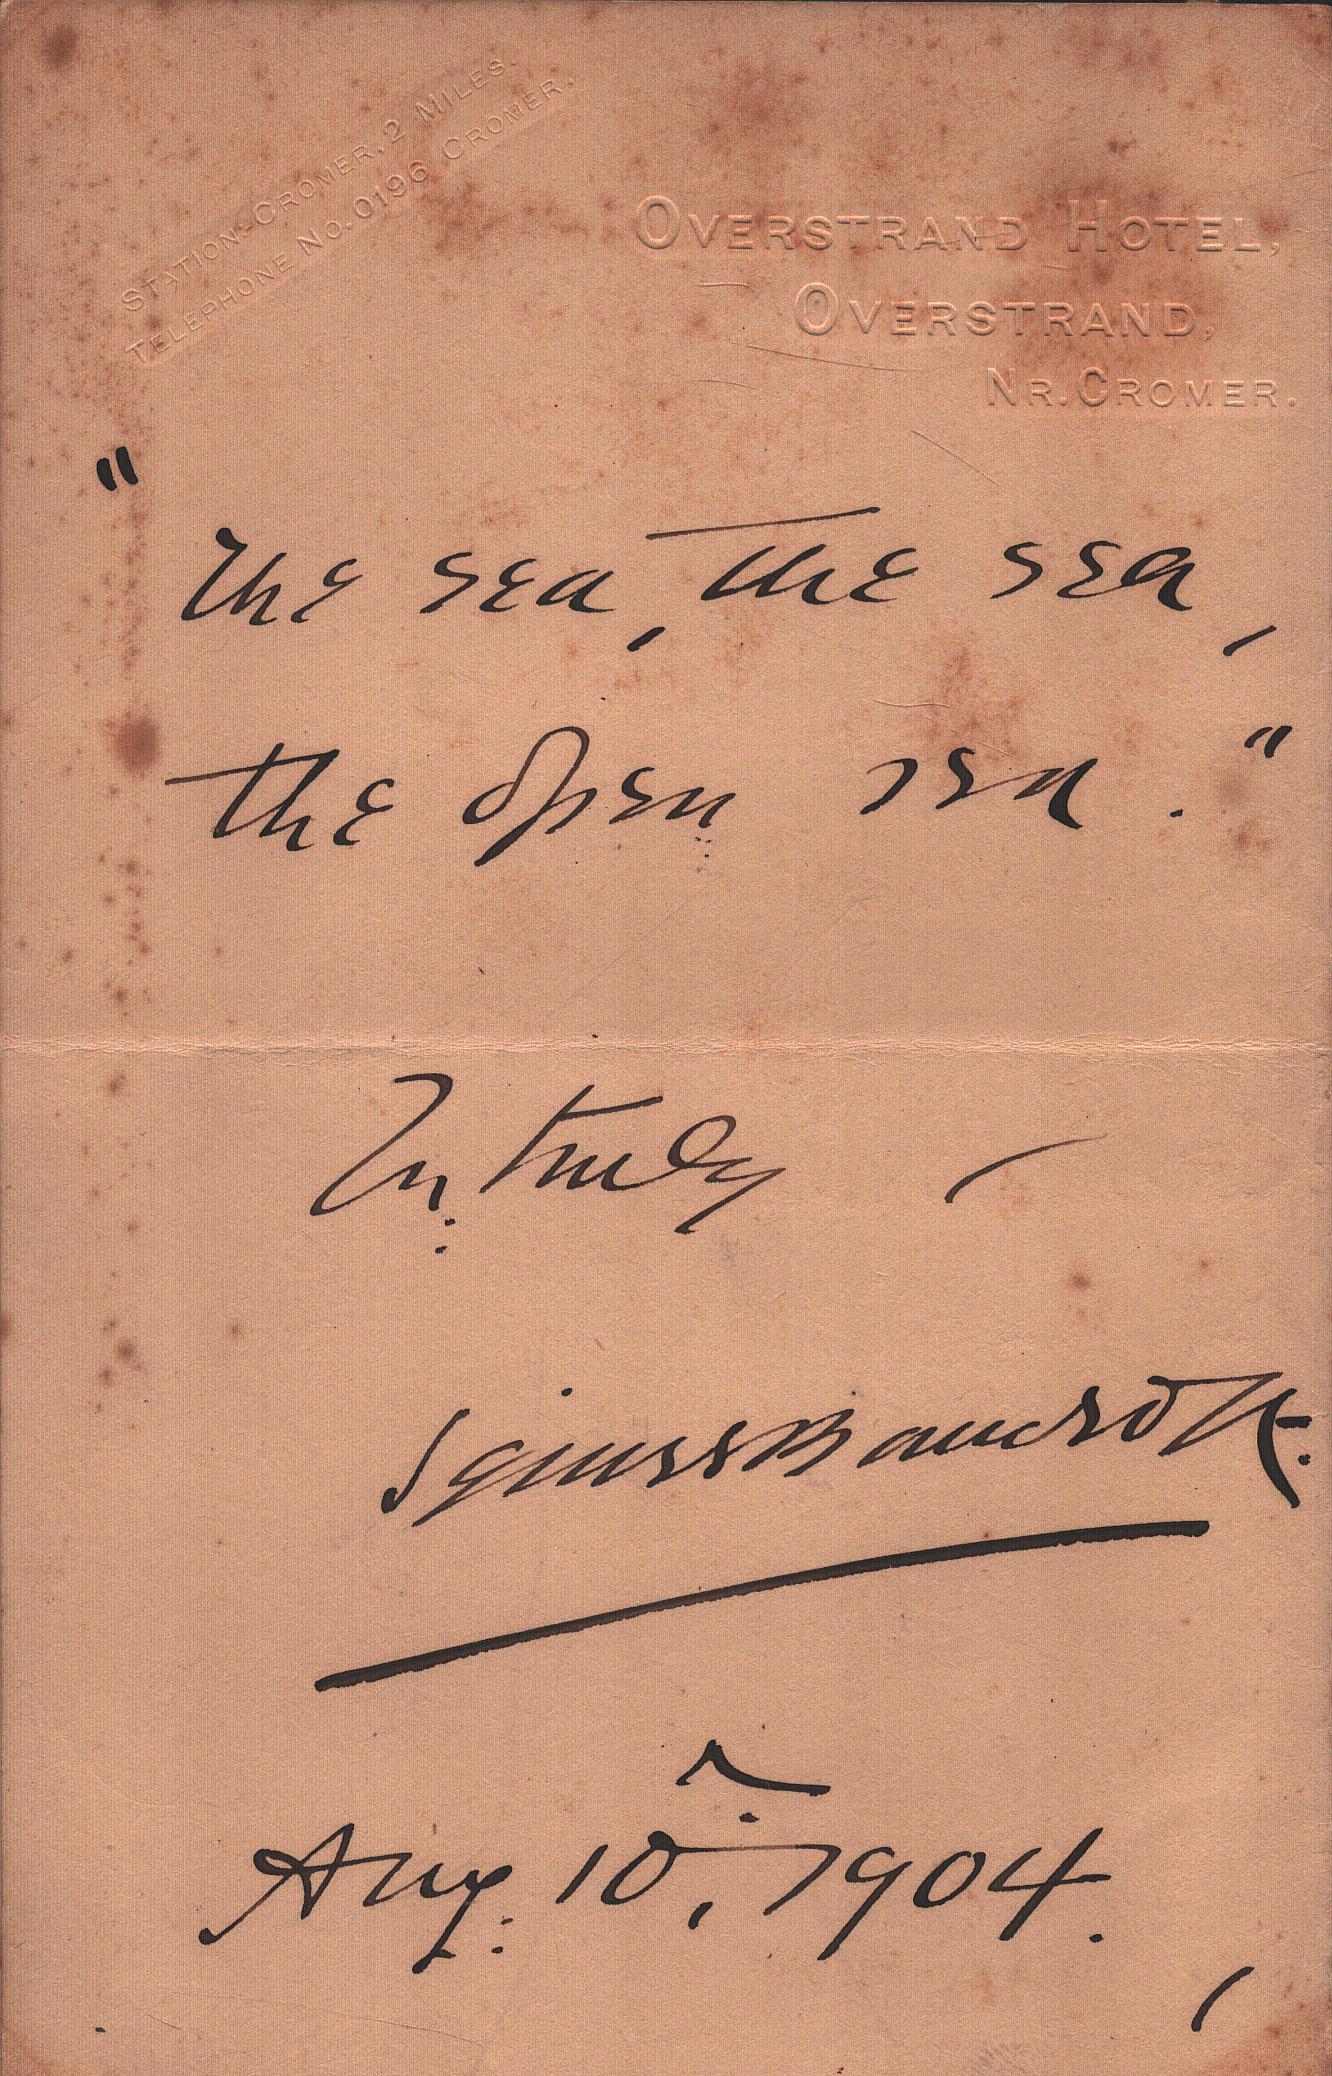 STATION-CROMER, 2 MILES.
TELEPHONE NO. 0196 CROMER.
OVERSTRAND HOTEL,
OVERSTRAND,
NR. CROMER.
"The sea, the sea,
the open sea."
Yrs: truly
Squire Bancroft.
Aug: 10th, 1904.